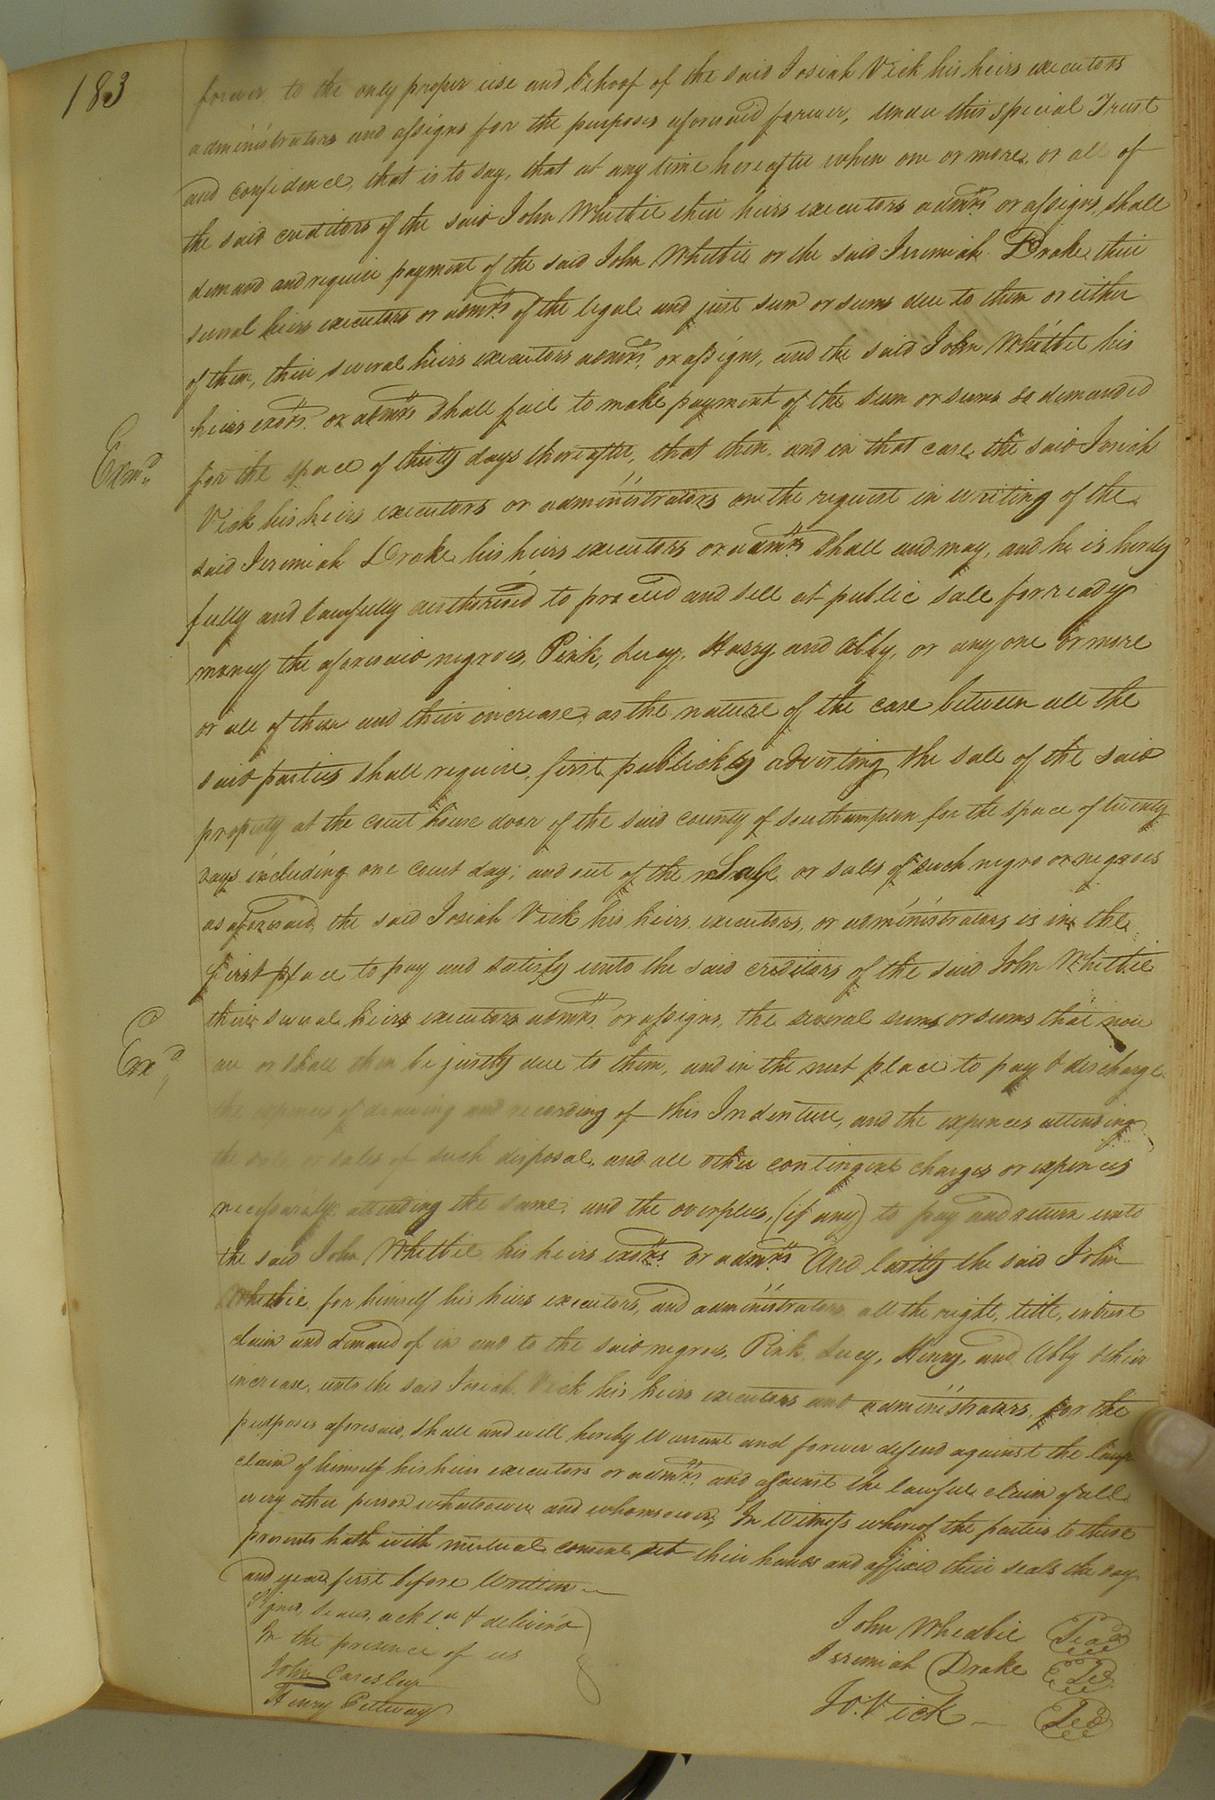 183
forever to the only proper use and behoof of the said Josiah Vick his heirs executors
administrators and assigns for the purposes aforesaid forever, under this special Trust
and confidence, that is to say, that at any time hereafter when one or more, or all of
the said creditors of the said John Whitbie their heirs executors admrs. or assigns, shall
demand and require payment of the said John Whitbie or the said Jeremiah Drake, their
several heirs executors or admrs. of the legal and just sum or sums due to them or either
of them, their several heirs executors admrs. or assigns, and the said John Whitbie his
heirs exors. or admrs shall fail to make payment of the sum or sums so demanded
Exmd.
for the space of thirty days thereafter, that then and in that case, the said Josiah
Vick his heirs executors or administrators on the request in writing of the
said Jeremiah Drake his heirs executors or admrs. shall and may, and he is hereby
fully and lawfully authorised to proceed and sell at public sale for ready
money the aforesaid negroes, Pink, Lucy, Harry and Abby, or any one or more
or all of them and their increase, as the nature of the case between all the
said parties shall require, first publickly adverting the sale of the said
property at the court house door of the said county of Southampton for the space of twenty
days including one court day; and out of the Sale or sales of such negro or negroes
as aforesaid, the said Josiah Vick his heirs, executors, or administrators is in the
first place to pay and satisfy unto the said creditors of the said John Whitbie
their several heirs executors admrs. or assigns, the several sums or sums that now
Exd.
are or shall then be justly due to them, and in the next place to pay & discharge
the expences of drawing and recording of this Indenture, and the expences attending
the sale or sales of such disposal, and all other contingent charges or expences
necessarily attending the same; and the overplus, (if any) to pay and return unto
the said John Whitbie his heirs exors. or admrs. And lastly the said John
Whitbie, for himself his heirs executors, and administrators all the right, title, interest
claim and demand of in and to the said negroes, Pink, Lucy, Henry, and Abby & their
increase, unto the said Josiah Vick his heirs executors and administrators, for the
purposes aforesaid, shall and will hereby warrant and forever defend against the
claim of himself his heirs executors or admrs. and against the lawful claim of all
every other person whatsoever and whomsoever, In Witness whereof the parties to these
presents hath with mutual consent set their hands and affixed their seals the day
and year first before Written
Signed, Sealed, ackd. & deliverd
In the presence of us
John
Henry Pettway
John Wheabie Seal
Jeremiah Drake
Jo. Vick